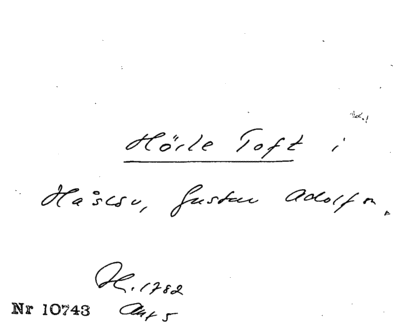 Hörle Toft i
Håslöv, Gustav Adolf
H. 1782
Nr 10743 Akt 5